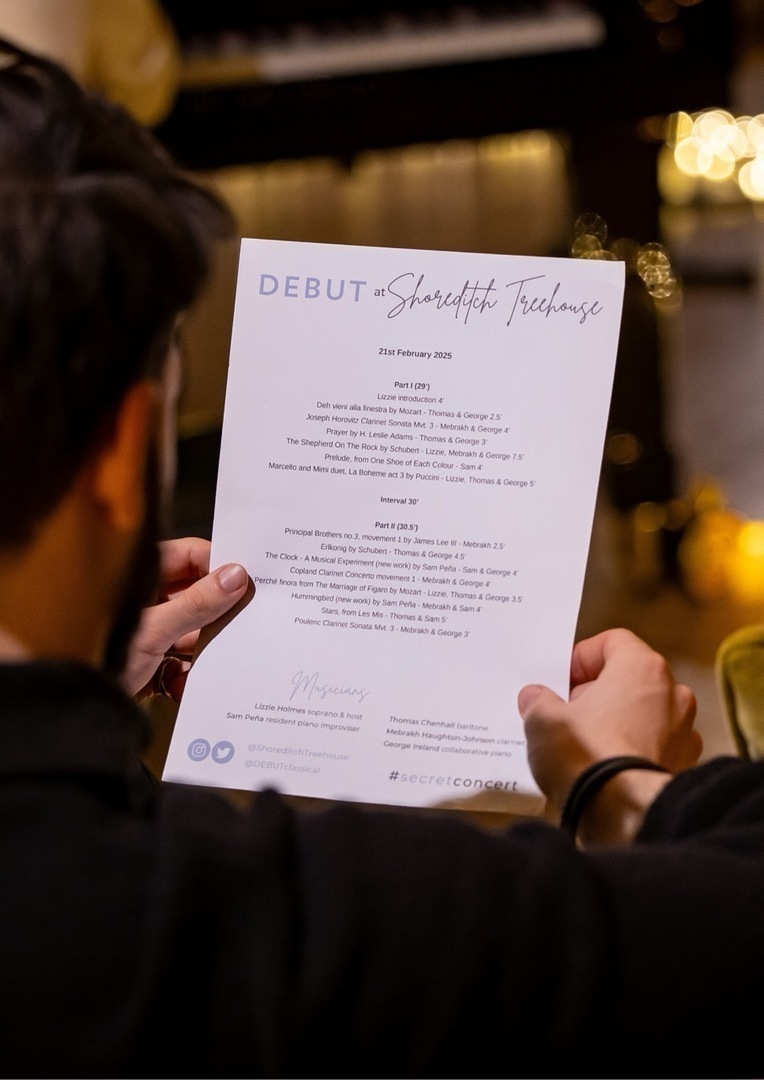 DEBUT at Shoreditch Treehouse
21st February 2025
Part I (29')
Lizzie introduction 4'
Deh vieni alla finestra by Mozart - Thomas & George 2.5'
Joseph Horovitz Clarinet Sonata Mvt. 3 - Mebrakh & George 4'
Prayer by H. Leslie Adams - Thomas & George 3'
The Shepherd On The Rock by Schubert - Lizzie, Mebrakh & George 7.5'
Prelude, from One Shoe of Each Colour - Sam 4'
Marcello and Mimi duet, La Boheme act 3 by Puccini - Lizzie, Thomas & George 5'
Interval 30'
Part II (30.5')
Principal Brothers no.3, movement 1 by James Lee III - Mebrakh 2.5'
Erlkonig by Schubert - Thomas & George 4.5'
The Clock - A Musical Experiment (new work) by Sam Peña - Sam & George 4'
Copland Clarinet Concerto movement 1 - Mebrakh & George 4'
Perchè finora from The Marriage of Figaro by Mozart - Lizzie, Thomas & George 3.5'
Hummingbird (new work) by Sam Peña - Mebrakh & Sam 4'
Stars, from Les Mis - Thomas & Sam 5'
Poulenc Clarinet Sonata Mvt. 3 - Mebrakh & George 3'
Musicians
Lizzie Holmes soprano & host
Sam Peña resident piano improviser
Thomas Chenhall baritone
Mebrakh Haughton-Johnson clarinet
George Ireland collaborative piano
@ShoreditchTreehouse
@DEBUTclassical
#secretconcert